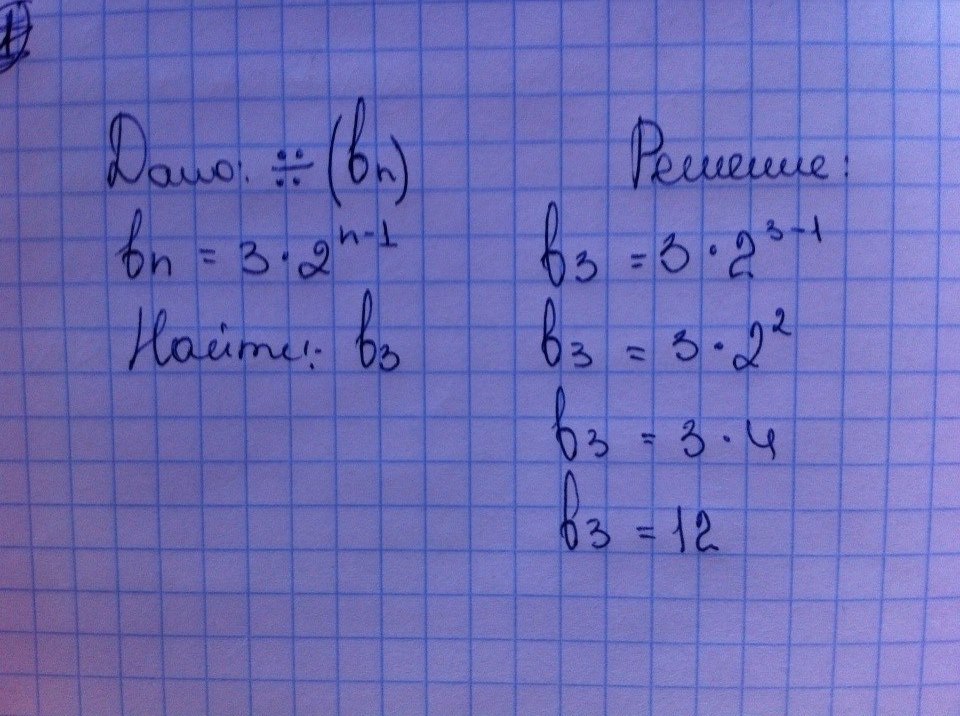 Дано: ∺ (bn)
bn = 3·2^(n-1)
Найти: b3
Решение:
b3 = 3·2^(3-1)
b3 = 3·2^2
b3 = 3·4
b3 = 12